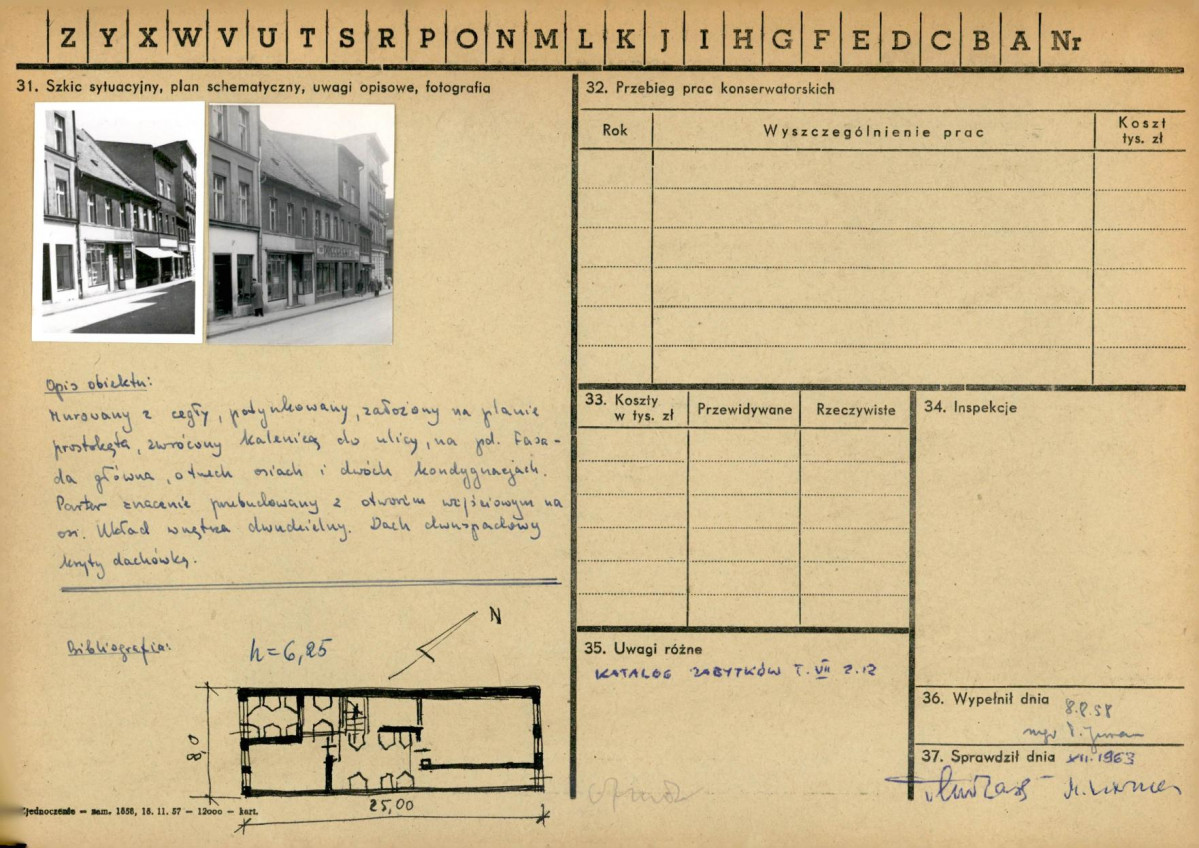 Z Y X W V U T S R P O N M L K J I H G F E D C B A Nr
31. Szkic sytuacyjny, plan schematyczny, uwagi opisowe, fotografia
Opis obiektu:
Murowany z cegły, potynkowany, założony na planie
prostokąta, zwrócony kalenicą do ulicy, na pd. Fasa-
da główna, o trzech osiach i dwóch kondygnacjach.
Parter znacznie przebudowany z otworem wejściowym na
osi. Układ wnętrza dwudzielny. Dach dwuspadowy
kryty dachówką.
Bibliografia:
h=6,25
N
8,0
25,00
Zjednoczenie — zam. 1858, 18. 11. 57 — 12000 — kart.
32. Przebieg prac konserwatorskich
Rok Wyszczególnienie prac Koszt
tys. zł
33. Koszty
w tys. zł Przewidywane Rzeczywiste
34. Inspekcje
35. Uwagi różne
KATALOG ZABYTKÓW T. VII Z. 12
36. Wypełnił dnia
8.8.58
mgr
37. Sprawdził dnia XII. 1963